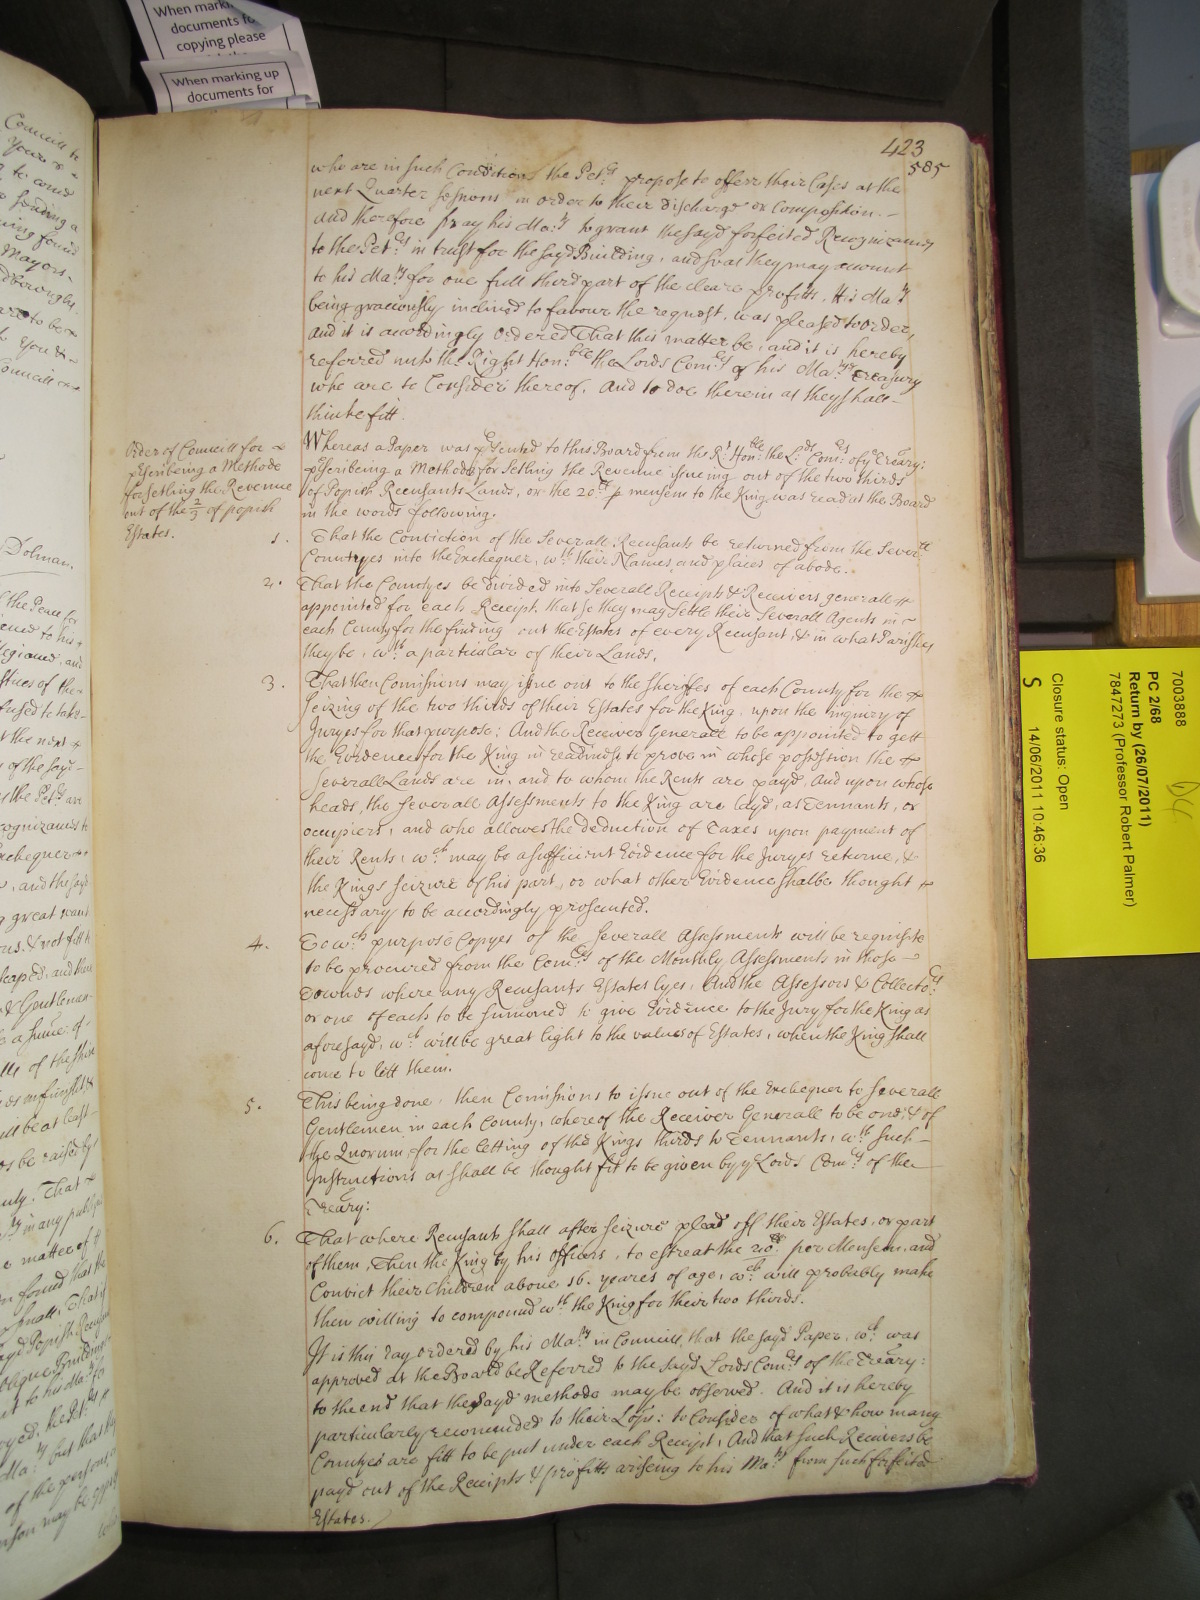 When marking
documents fo
copying please
When marking up
documents for
423
585
who are in such Condition, the Pet.rs propose to offerr their Cases at the
next Quarter Sessions in order to their discharge or Composition. -
and therefore pray his Ma:ty to grant the sayd forfeited Recognizances
to the Pet.rs in trust for the sayd Building, and soe as they may account
to his Ma:ty for one full third part of the cleare profitts. His Ma:ty
being graciously inclined to favour the request, was pleased to order,
and it is accordingly ordered That this matter be, and it is hereby
referred unto the Right Hon:ble the Lords Com:rs of his Ma:tys Treasury
who are to Consider thereof, And to doe therein as they shall -
thinke fitt.
Order of Councill for
pscribeing a Methode
for setling the Revenue
out of the 2/3 of popish
Estates.
Whereas a Paper was psented to this Board from the Rt Hon:ble the L:ds Com:rs of ye Treãry:
pscribeing a Methode for setling the Revenue issueing out of the two thirds
of Popish Recusants Lands, or the 20:li p mensem to the King was read at the Board
in the words following.
1. That the Conviction of the Severall Recusants be returned from the Severll
Countyes into the Exchequer, wth their Names, and places of abode.
2. That the Countyes be divided into Severall Receipts & Receivers generall
appointed for each Receipt, that so they may settle their Severall Agents in
each County for the finding out the Estates of every Recusant, & in what Parishes
they be, wth a particular of their Lands.
3. That then Comissions may issue out to the Sheriffes of each County for the
Seizing of the two thirds of their Estates for the King, upon the inquiry of
Juryes for that purpose; And the Receiver Generall to be appointed to gett
the Evidence for the King in readinesse to prove in whose possession the
Severall Lands are in, and to whom the Rents are payd, And upon whose
heads, the Severall Assessments to the King are layd, as Tennants, or
occupiers, and who allowes the deduction of Taxes upon payment of
their Rents, wch may be a sufficient Evidence for the Juryes returne, &
the Kings Seizure of his part, or what other Evidence shalbe thought
necessary to be accordingly prosecuted.
4. To wch purpose Copyes of the Severall Assessments will be requisite
to be procured from the Com:rs of the Monthly Assessments in those -
Townds where any Recusants Estates lyes, And the Assessors & Collecto:rs
or one of each to be sumoned to give Evidence to the Jury for the King as
aforesayd, wch will be great light to the values of Estates, when the King shall
come to lett them.
5. This being done, then Comissions to issue out of the Exchequer to Severall
Gentlemen in each County, whereof the Receiver Generall to be one, & of
the Quorum, for the letting of the Kings thirds to Tennants, wth such -
Instructions as shall be thought fit to be given by ye Lords Com:rs of the
Treãry:
6. That where Recusants shall after seizure plead off their Estates, or part
of them, Then the King by his officers, to estreat the 20:li per Mensem, and
Convict their Children above 16. yeares of age, wch will probably make
them willing to compound wth the King for their two thirds.
It is this day ordered by his Ma:ty in Councill, that the sayd Paper, wch was
approved at the Board be Referred to the sayd Lords Com:rs of the Treãry:
to the end that the sayd methode may be observed. And it is hereby
particularly recomended to their Lops: to Consider of what & how many
Countyes are fitt to be put under each Receipt, And that such Receivers be
payd out of the Receipts & profitts ariseing to his Ma:ty from such forfeited
Estates.
7003888
PC 2/68
Return by (26/07/2011)
7847273 (Professor Robert Palmer)
Closure status: Open
S 14/06/2011 10:46:36